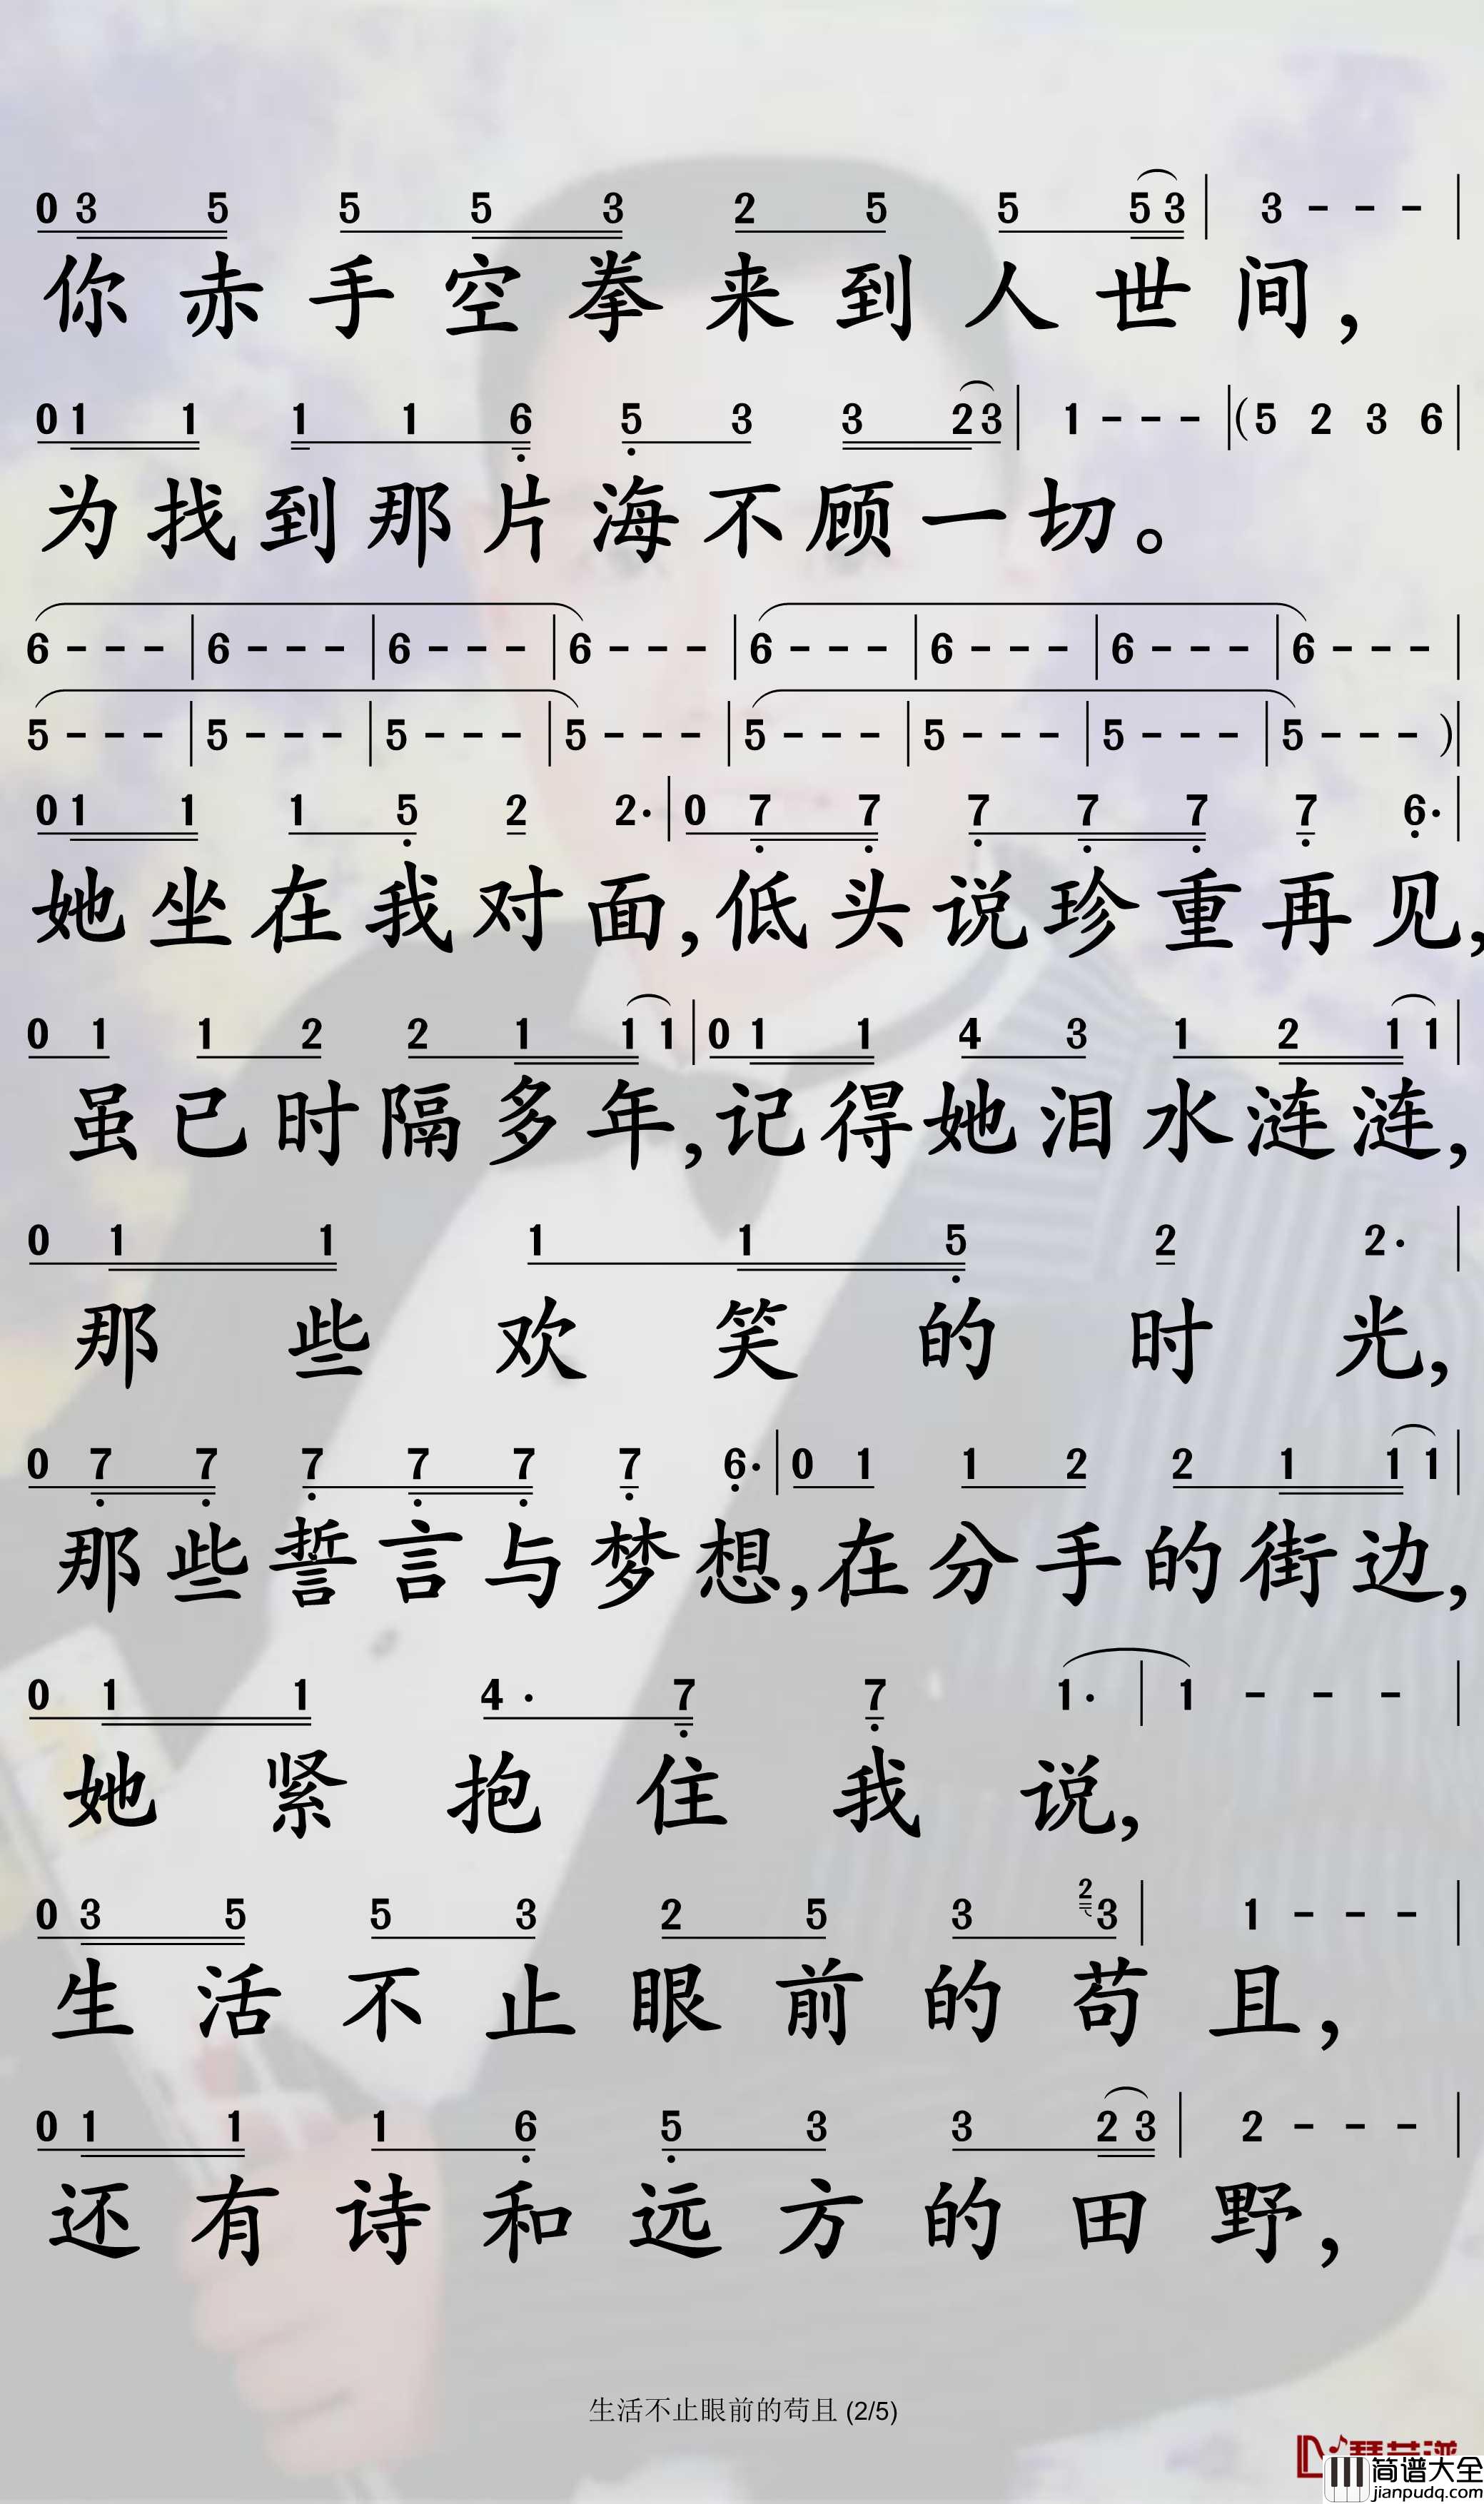 0 3 5 5 5 3 2 5 5 5 3 | 3 - - - |
你赤手空拳来到人世间，
0 1 1 1 1 6 5 3 3 2 3 | 1 - - - | (5 2 3 6 |
为找到那片海不顾一切。
6 - - - | 6 - - - | 6 - - - | 6 - - - | 6 - - - | 6 - - - | 6 - - - | 6 - - - |
5 - - - | 5 - - - | 5 - - - | 5 - - - | 5 - - - | 5 - - - | 5 - - - | 5 - - - ) |
0 1 1 1 5 2 2· | 0 7 7 7 7 7 7 6· |
她坐在我对面，低头说珍重再见，
0 1 1 2 2 1 1 1 | 0 1 1 4 3 1 2 1 1 |
虽已时隔多年，记得她泪水涟涟，
0 1 1 1 1 5 2 2· |
那些欢笑的时光，
0 7 7 7 7 7 7 6· | 0 1 1 2 2 1 1 1 |
那些誓言与梦想，在分手的街边，
0 1 1 4· 7 7 1· | 1 - - - |
她紧抱住我说，
0 3 5 5 3 2 5 3 2 3 | 1 - - - |
生活不止眼前的苟且，
0 1 1 1 6 5 3 3 2 3 | 2 - - - |
还有诗和远方的田野，
生活不止眼前的苟且 (2/5)
简谱大全
jianpudq.com